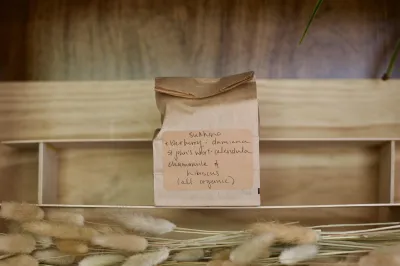 elderberry · damiana
st john's wort · calendula
chamomile &
hibiscus
(all organic)